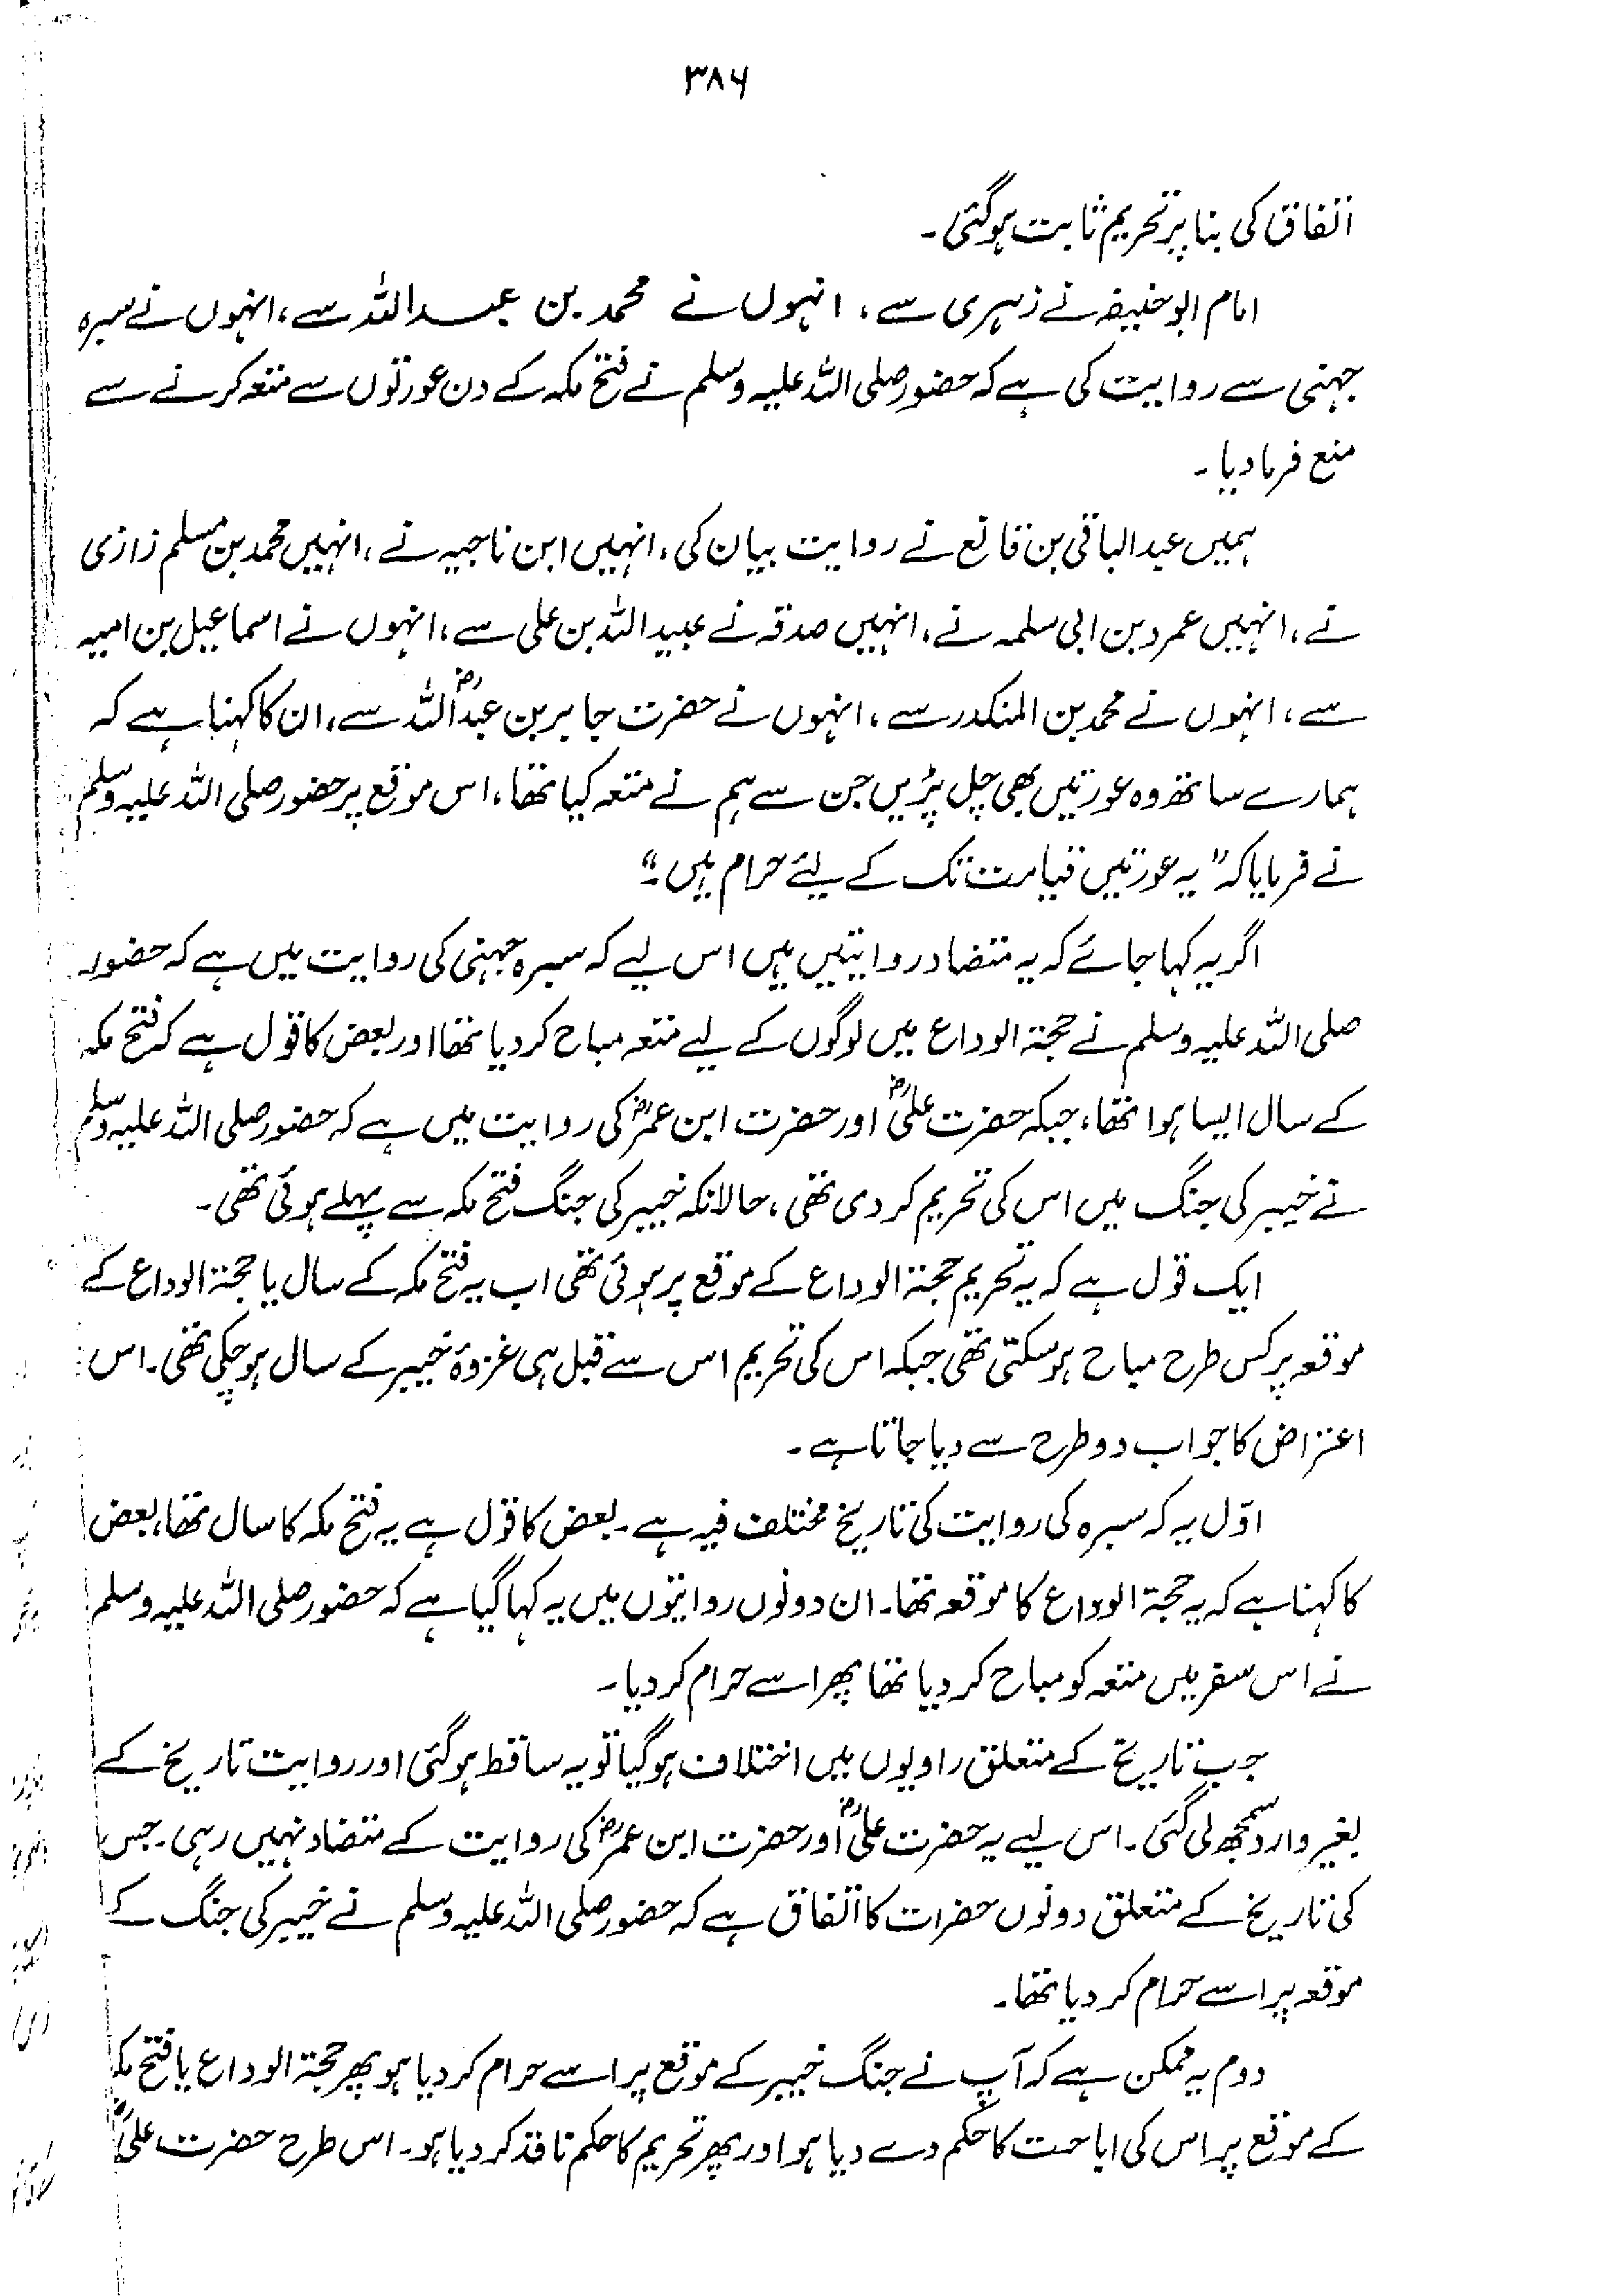 ۳۸۶
اتفاق کی بنا پر تحریم ثابت ہوگئی۔
امام ابوحنیفہ نے زہری سے، انہوں نے محمد بن عبداللہ سے، انہوں نے سبرہ
جہنی سے روایت کی ہے کہ حضور صلی اللہ علیہ وسلم نے فتح مکہ کے دن عورتوں سے متعہ کرنے سے
منع فرمادیا۔
ہمیں عبدالباقی بن قانع نے روایت بیان کی، انہیں ابن ناجیہ نے، انہیں محمد بن مسلم رازی
نے، انہیں عمرو بن ابی سلمہ نے، انہیں صدقہ نے عبیداللہ بن علی سے، انہوں نے اسماعیل بن امیہ
سے، انہوں نے محمد بن المنکدر سے، انہوں نے حضرت جابر بن عبداللہؓ سے، ان کا کہنا ہے کہ
ہمارے ساتھ وہ عورتیں بھی چل پڑیں جن سے ہم نے متعہ کیا تھا، اس موقع پر حضور صلی اللہ علیہ وسلم
نے فرمایا کہ "یہ عورتیں قیامت تک کے لئے حرام ہیں۔"
اگر یہ کہا جائے کہ یہ متضاد روایتیں ہیں اس لیے کہ سبرہ جہنی کی روایت میں ہے کہ حضور
صلی اللہ علیہ وسلم نے حجۃ الوداع میں لوگوں کے لیے متعہ مباح کردیا تھا اور بعض کا قول ہے کہ فتح مکہ
کے سال ایسا ہوا تھا، جبکہ حضرت علیؓ اور حضرت ابن عمرؓ کی روایت میں ہے کہ حضور صلی اللہ علیہ وسلم
نے خیبر کی جنگ میں اس کی تحریم کردی تھی، حالانکہ خیبر کی جنگ فتح مکہ سے پہلے ہوئی تھی۔
ایک قول ہے کہ یہ تحریم حجۃ الوداع کے موقع پر ہوئی تھی اب یہ فتح مکہ کے سال یا حجۃ الوداع کے
موقعہ پر کس طرح مباح ہوسکتی تھی جبکہ اس کی تحریم اس سے قبل ہی غزوۂ خیبر کے سال ہوچکی تھی۔ اس
اعتراض کا جواب دو طرح سے دیا جاتا ہے۔
اوّل یہ کہ سبرہ کی روایت کی تاریخ مختلف فیہ ہے۔ بعض کا قول ہے یہ فتح مکہ کا سال تھا، بعض
کا کہنا ہے کہ یہ حجۃ الوداع کا موقعہ تھا۔ ان دونوں روایتوں میں یہ کہا گیا ہے کہ حضور صلی اللہ علیہ وسلم
نے اس سفر میں متعہ کو مباح کردیا تھا پھر اسے حرام کردیا۔
جب تاریخ کے متعلق راویوں میں اختلاف ہوگیا تو یہ ساقط ہوگئی اور روایت تاریخ کے
بغیر وارد سمجھ لی گئی۔ اس لیے یہ حضرت علیؓ اور حضرت ابن عمرؓ کی روایت کے متضاد نہیں رہی۔ جس
کی تاریخ کے متعلق دونوں حضرات کا اتفاق ہے کہ حضور صلی اللہ علیہ وسلم نے خیبر کی جنگ کے
موقعہ پر اسے حرام کردیا تھا۔
دوم یہ ممکن ہے کہ آپ نے جنگ خیبر کے موقع پر اسے حرام کردیا ہو پھر حجۃ الوداع یا فتح مکہ
کے موقع پر اس کی اباحت کا حکم دے دیا ہو اور پھر تحریم کا حکم نافذ کردیا ہو۔ اس طرح حضرت علیؓ